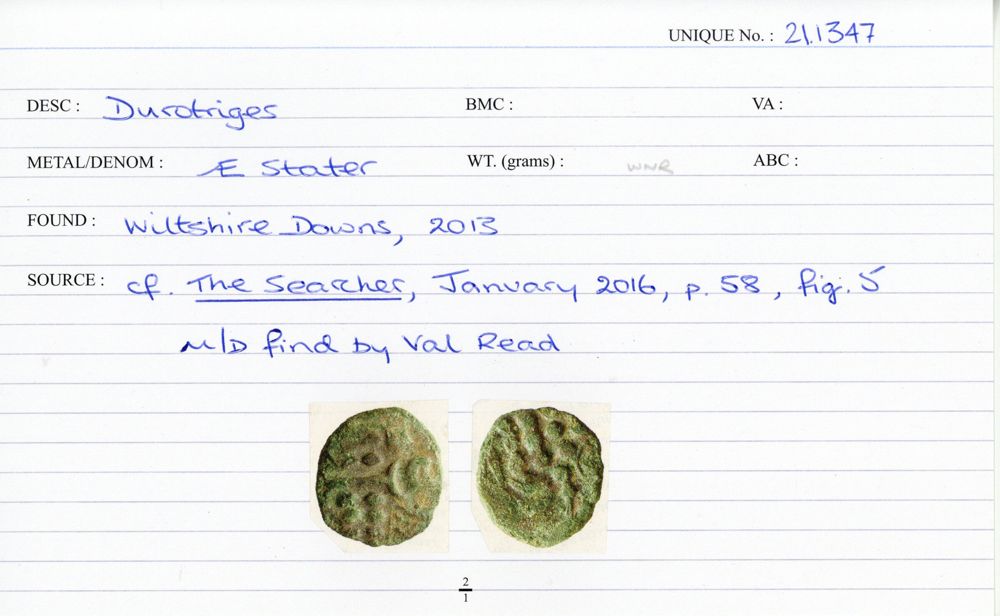 UNIQUE No. : 21.1347
DESC : Durotriges BMC : VA :
METAL/DENOM : Æ Stater WT. (grams) : WNR ABC :
FOUND : Wiltshire Downs, 2013
SOURCE : cf. The Searcher, January 2016, p. 58, fig. 5
M/D find by Val Read
2
1